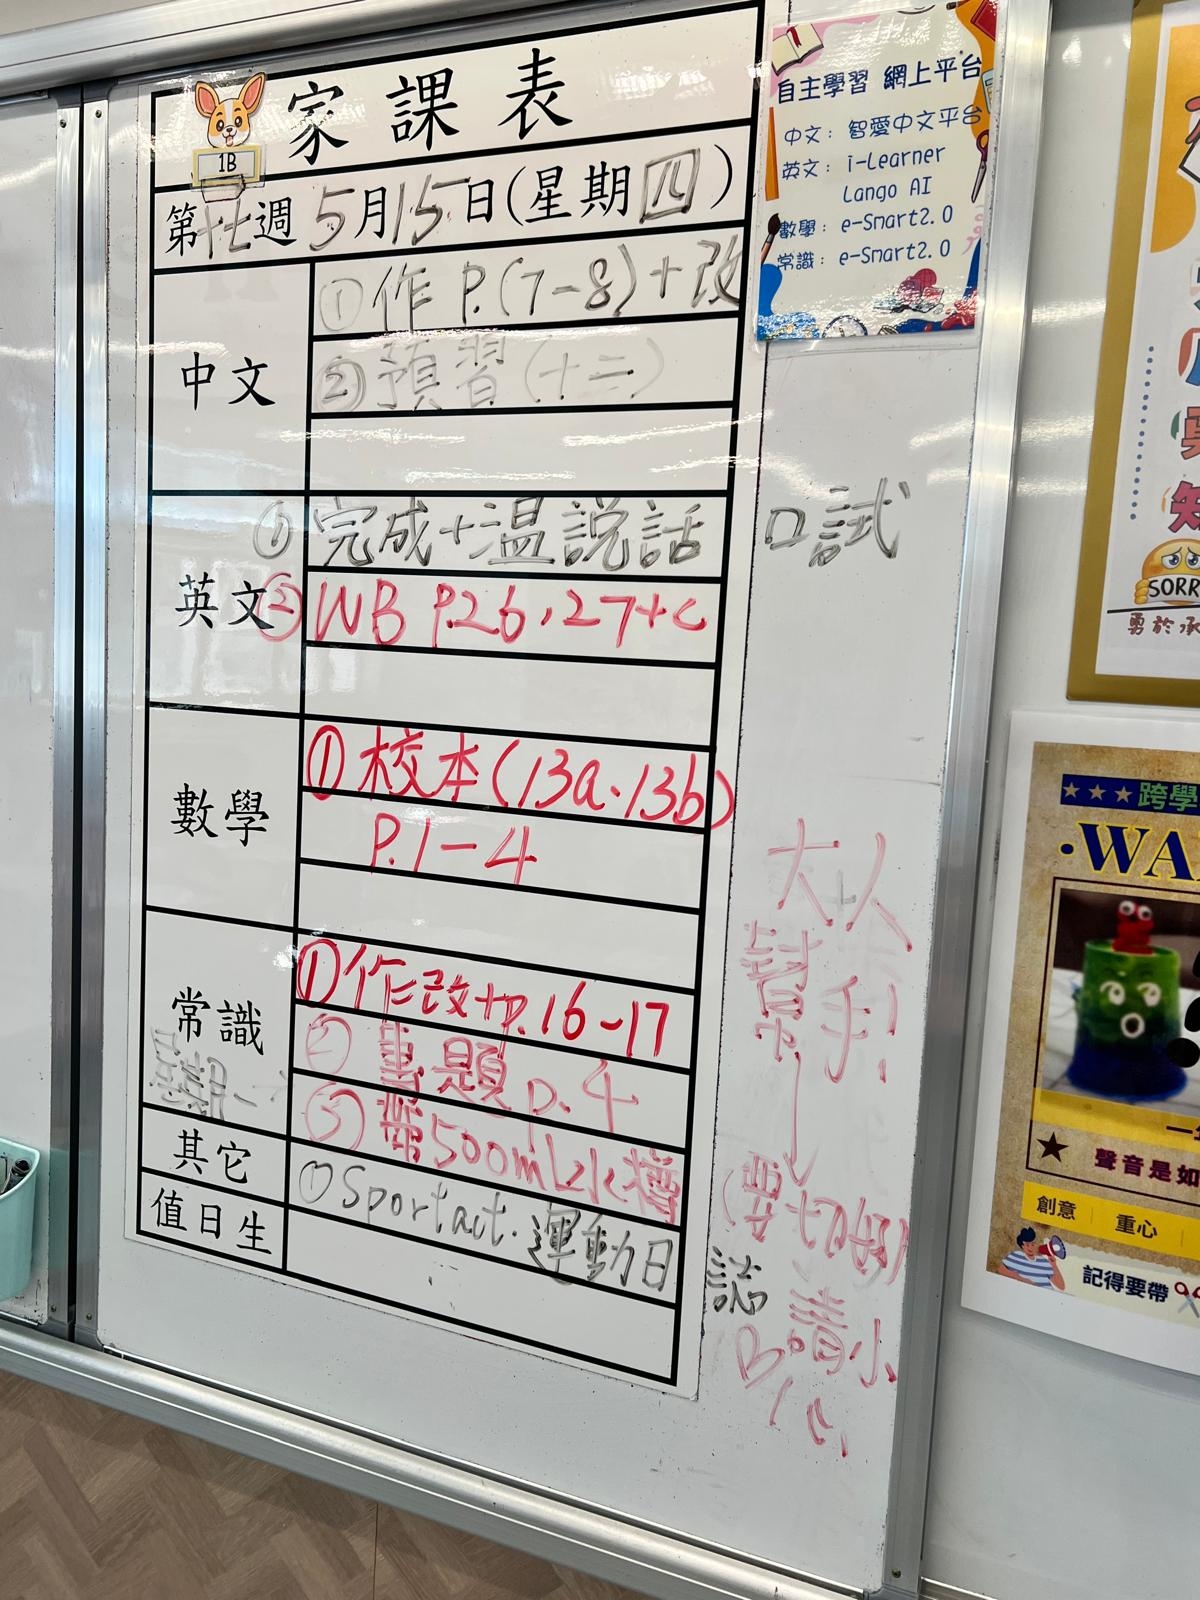 家課表
1B
第十七週 5月15日(星期四)
中文
①作 P.(7-8)+改
②預習(十二)
英文
①完成+溫說話口試
②WB P.26,27+c
數學
①校本(13a.13b)
P.1-4
常識
①作改+p.16-17
②書題 p.4
③帶500mL水樽
星期一
其它
①Sport act. 運動日誌
值日生
大人
幫手!
(要切好)
請小心!
自主學習 網上平台
中文: 智愛中文平台
英文: i-Learner
Lango AI
數學: e-Smart2.0
常識: e-Smart2.0
SORR
勇於承
跨學
·WA
聲音是如
創意 重心
記得要帶